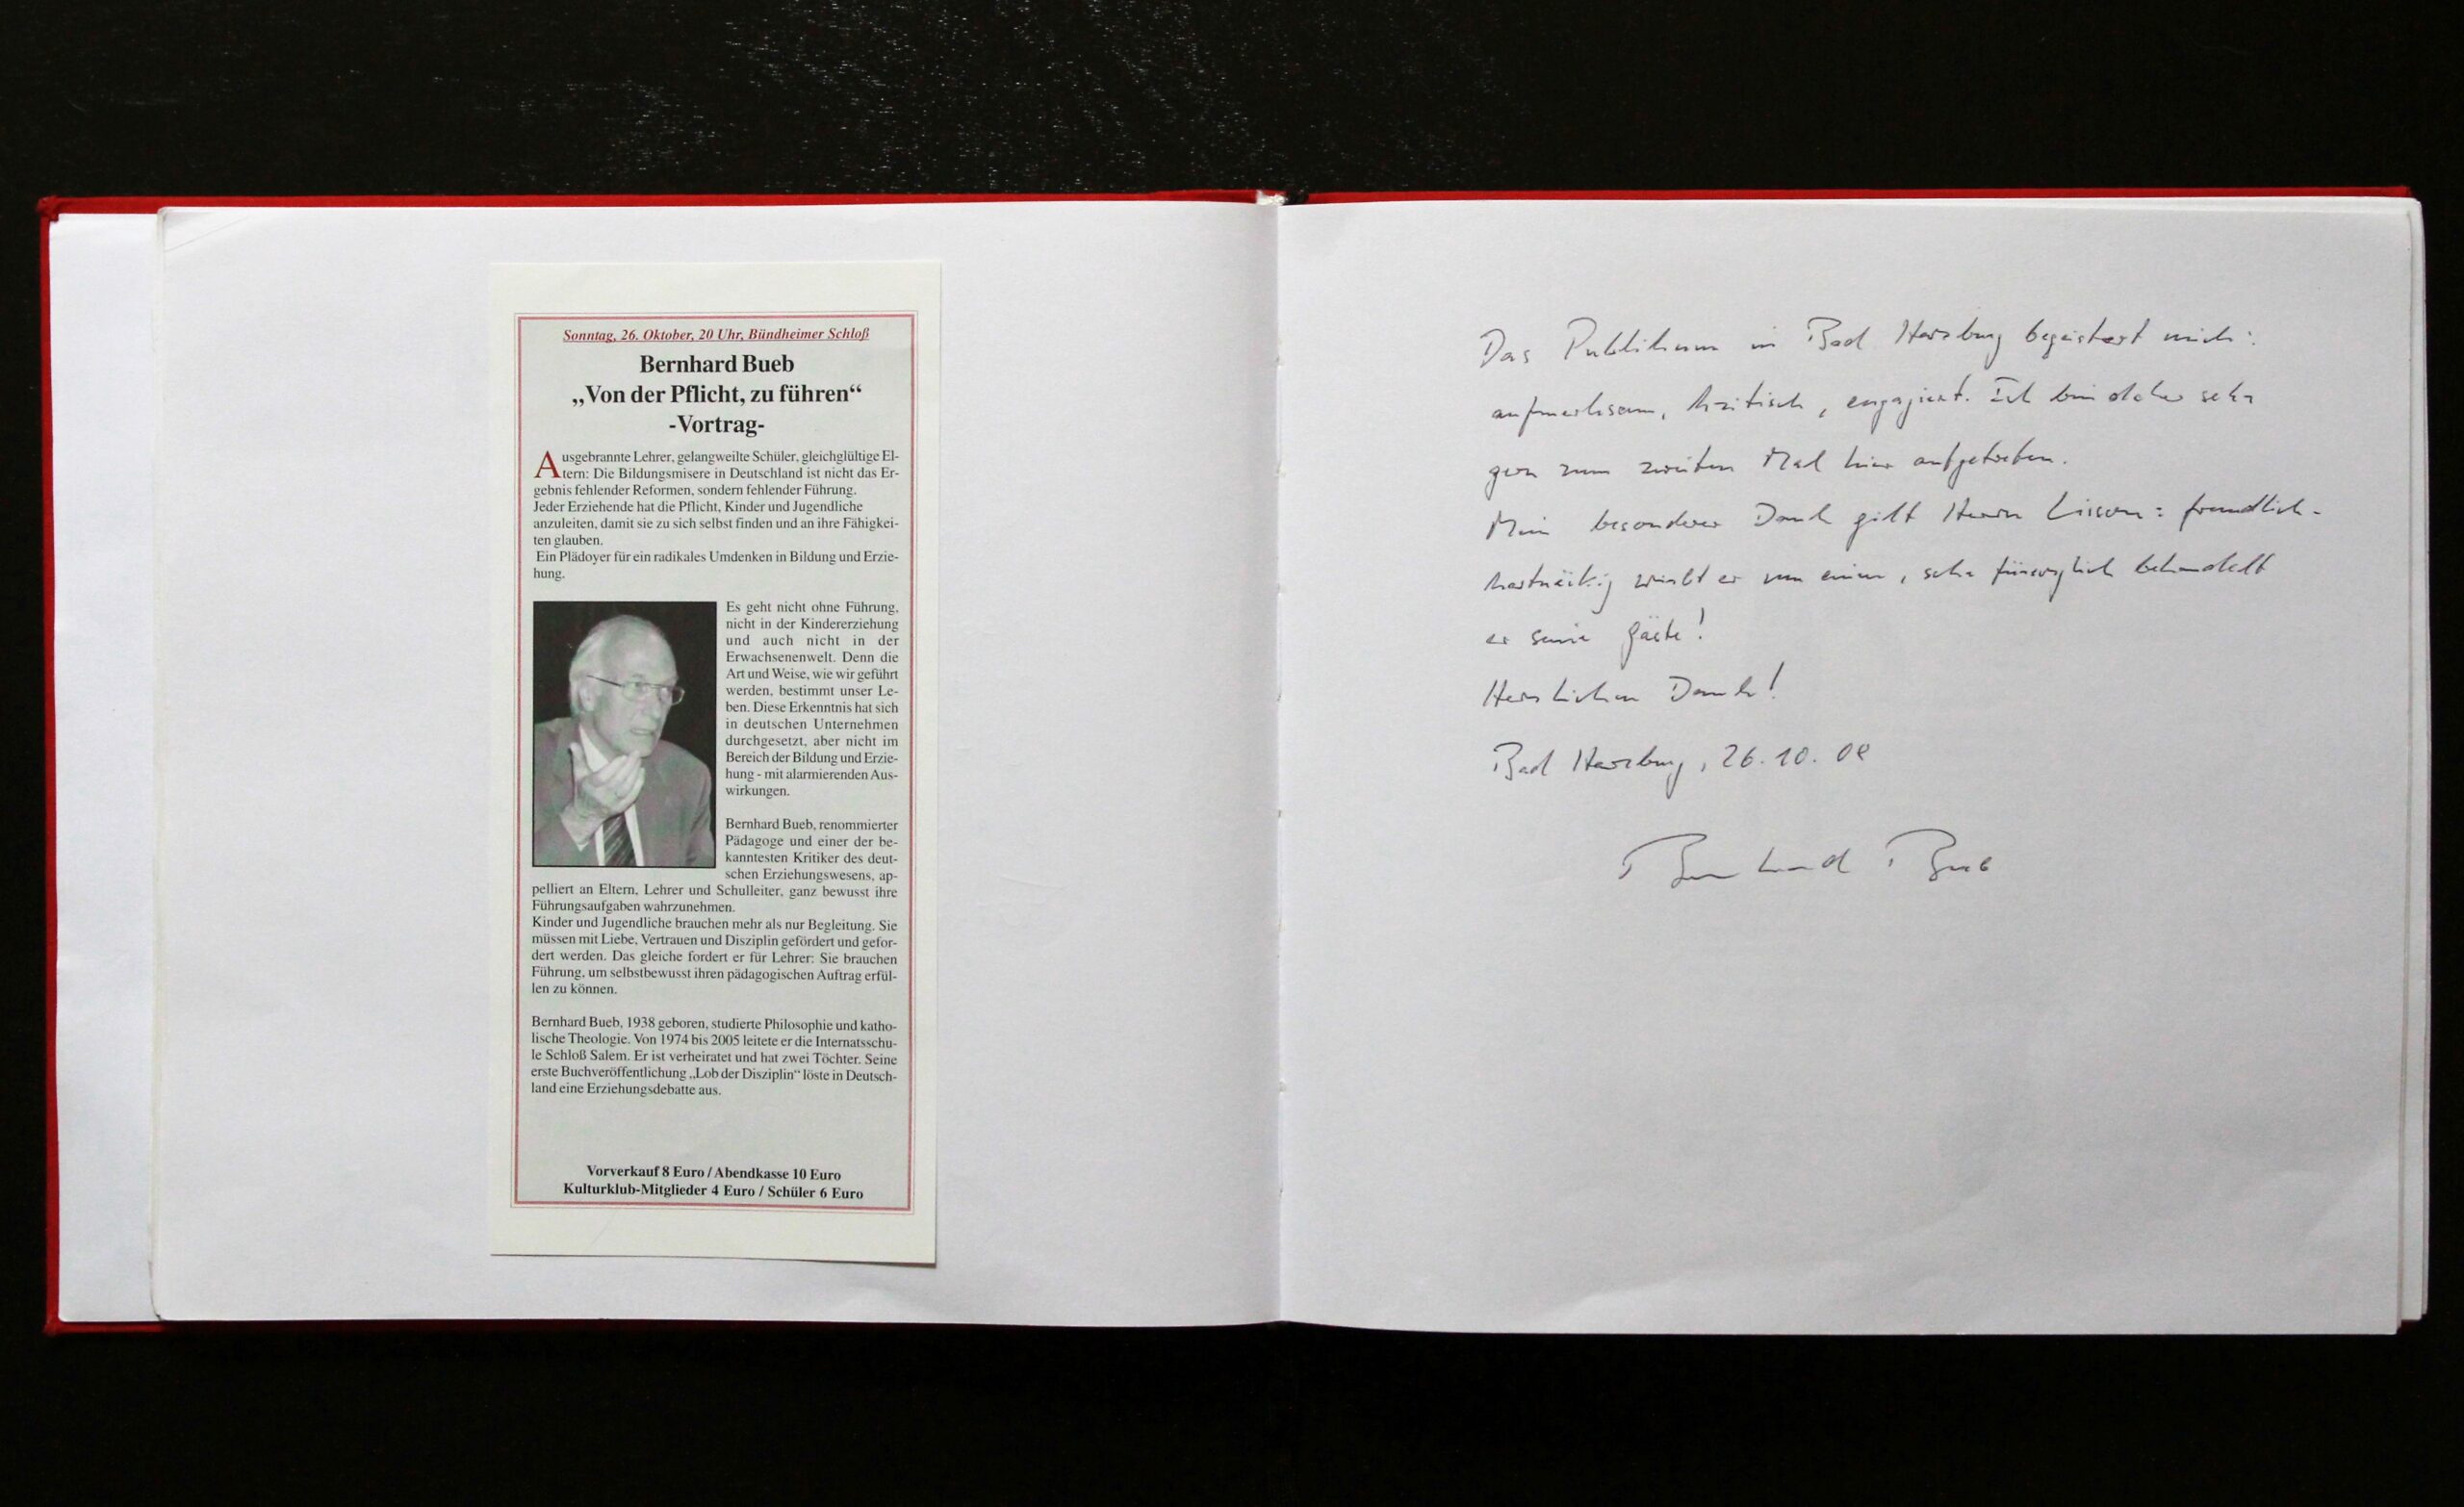 Sonntag, 26. Oktober, 20 Uhr, Bündheimer Schloß
Bernhard Bueb
„Von der Pflicht, zu führen“
-Vortrag-
Ausgebrannte Lehrer, gelangweilte Schüler, gleichglültige El-
tern: Die Bildungsmisere in Deutschland ist nicht das Er-
gebnis fehlender Reformen, sondern fehlender Führung.
Jeder Erziehende hat die Pflicht, Kinder und Jugendliche
anzuleiten, damit sie zu sich selbst finden und an ihre Fähigkei-
ten glauben.
Ein Plädoyer für ein radikales Umdenken in Bildung und Erzie-
hung.
Es geht nicht ohne Führung,
nicht in der Kindererziehung
und auch nicht in der
Erwachsenenwelt. Denn die
Art und Weise, wie wir geführt
werden, bestimmt unser Le-
ben. Diese Erkenntnis hat sich
in deutschen Unternehmen
durchgesetzt, aber nicht im
Bereich der Bildung und Erzie-
hung - mit alarmierenden Aus-
wirkungen.
Bernhard Bueb, renommierter
Pädagoge und einer der be-
kanntesten Kritiker des deut-
schen Erziehungswesens, ap-
pelliert an Eltern, Lehrer und Schulleiter, ganz bewusst ihre
Führungsaufgaben wahrzunehmen.
Kinder und Jugendliche brauchen mehr als nur Begleitung. Sie
müssen mit Liebe, Vertrauen und Disziplin gefördert und gefor-
dert werden. Das gleiche fordert er für Lehrer: Sie brauchen
Führung, um selbstbewusst ihren pädagogischen Auftrag erfül-
len zu können.
Bernhard Bueb, 1938 geboren, studierte Philosophie und katho-
lische Theologie. Von 1974 bis 2005 leitete er die Internatsschu-
le Schloß Salem. Er ist verheiratet und hat zwei Töchter. Seine
erste Buchveröffentlichung „Lob der Disziplin“ löste in Deutsch-
land eine Erziehungsdebatte aus.
Vorverkauf 8 Euro / Abendkasse 10 Euro
Kulturklub-Mitglieder 4 Euro / Schüler 6 Euro
Das Publikum in Bad Harzburg begeistert mich:
aufmerksam, kritisch, engagiert. Ich bin daher sehr
gern zum zweiten Mal hier aufgetreten.
Mein besonderer Dank gilt Herrn : freundlich-
hartnäckig wirbt er um einen, sehr fürsorglich behandelt
er seine Gäste!
Herzlichen Dank!
Bad Harzburg, 26.10.08
Bernhard Bueb